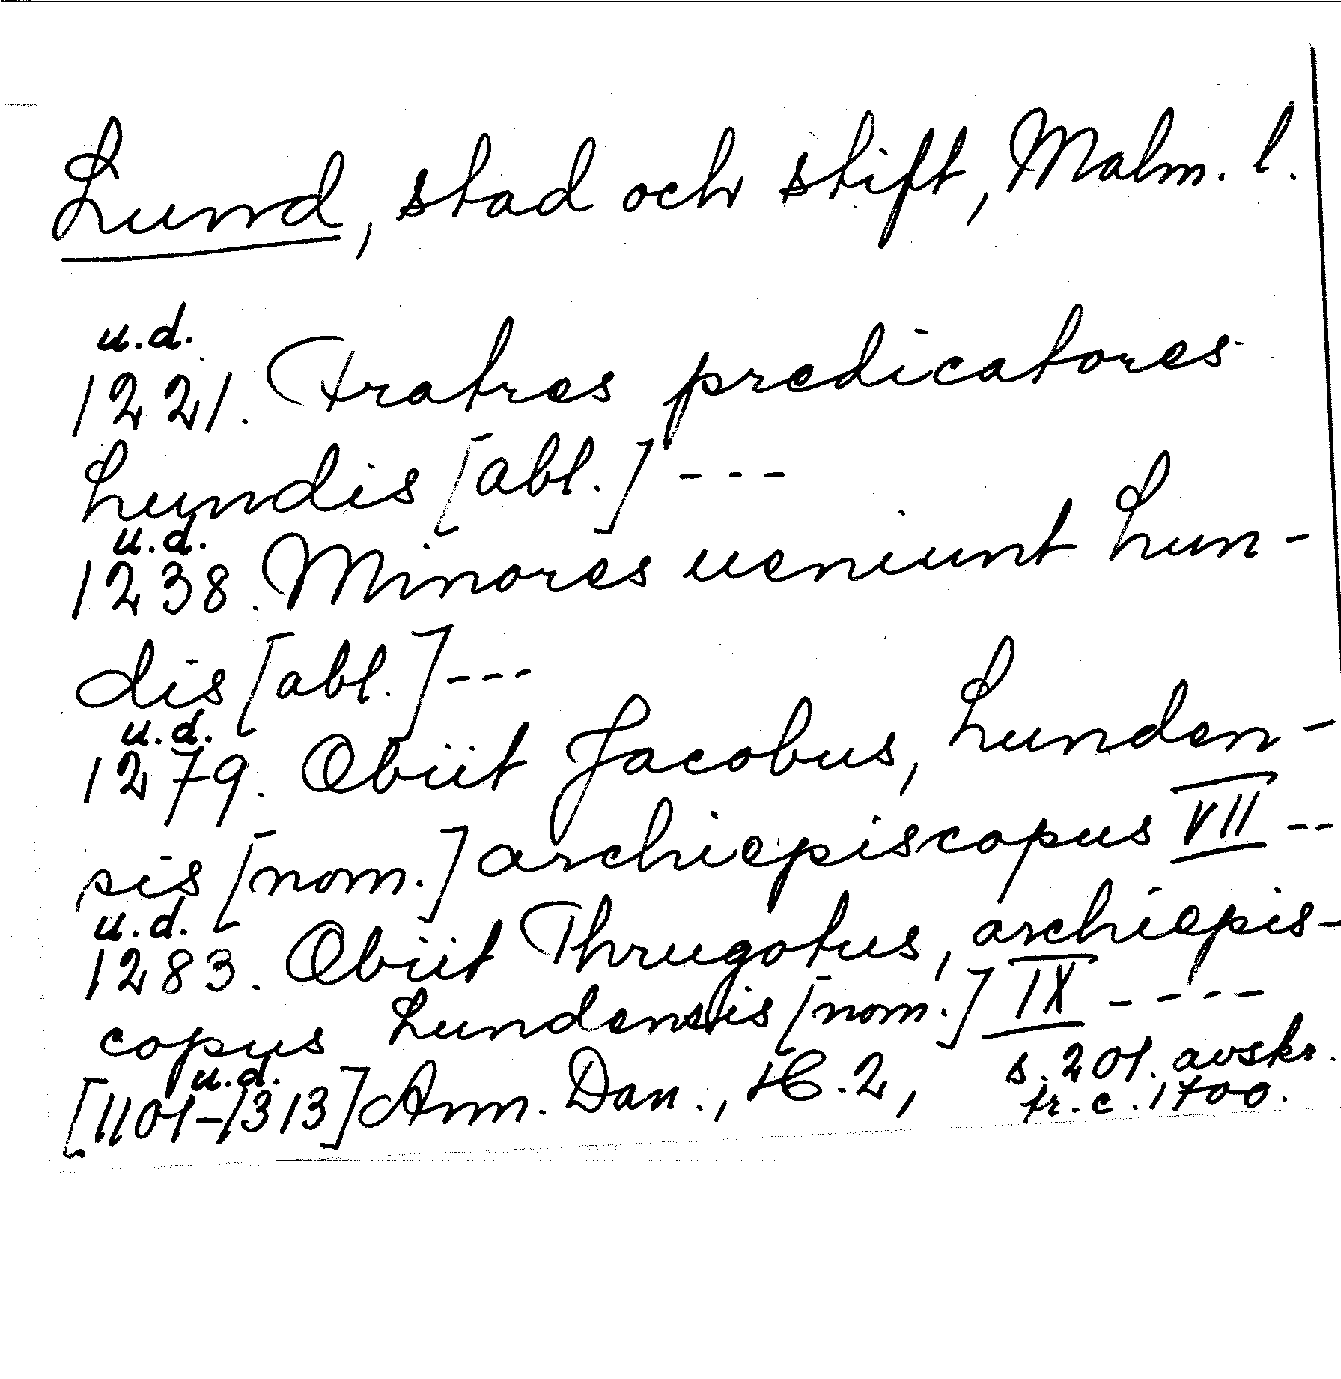 Lund, stad och stift, Malm. l.
u.d.
1221. Fratres predicatores
Lundis [abl.] ---
u.d.
1238. Minores ueniunt Lun-
dis [abl.] ---
u.d.
1279. Obiit Jacobus, Lunden-
sis [nom.] archiepiscopus VII --
u.d.
1283. Obiit Thrugotus, archiepis-
copus Lundensis [nom.] IX ----
u.d.
[1101-1313] Ann. Dan., H. 2, s. 201. avskr.
fr. c. 1700.